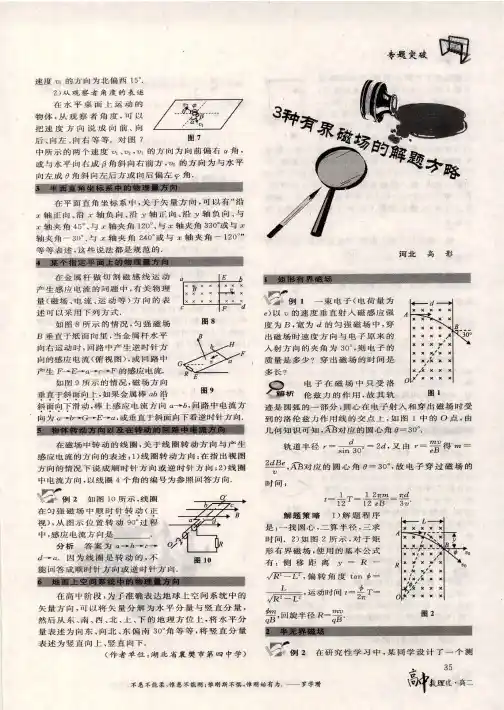 专题突破
速度 v₁ 的方向为北偏西 15°.
2)从观察者角度的表述
在水平桌面上运动的
物体,从观察者角度,可以
把速度方向说成向前、向
后、向左、向右等等. 对图 7
图 7
中所示的两个速度
的方向为向前偏右 α 角,
或与水平向右成 β 角斜向右前方,
的方向为与水平
向左成 θ 角斜向左后方或向后偏左 φ 角.
3 平面直角坐标系中的物理量方向
在平面直角坐标系中,关于矢量方向,可以有“沿
x 轴正向、沿 x 轴负向、沿 y 轴正向、沿 y 轴负向、与
x 轴夹角 45°、与 x 轴夹角 120°、与 x 轴夹角 330°或与 x
轴夹角-30°、与 x 轴夹角 240°或与 x 轴夹角-120°”
等等表述,这些说法都是规范的.
4 某个指定平面上的物理量方向
在金属杆做切割磁感线运动
产生感应电流的问题中,有关物理
量(磁场、电流、运动等)方向的表
述可以采用下列方式.
图 8
如图 8 所示的情况,匀强磁场
B 垂直于纸面向里,当金属杆水平
向右运动时,回路中产生逆时针方
向的感应电流(俯视图),或回路中
产生 F→E→a→
→F 的感应电流.
图 9
如图 9 所示的情况,磁场方向
垂直于斜面向上,如果金属棒 ab 沿
斜面向下滑动,棒上感应电流方向 a→b,回路中电流方
向为
,或垂直于斜面向下看逆时针方向.
5 物体转动方向以及在转动的回路中电流方向
在磁场中转动的线圈,关于线圈转动方向与产生
感应电流的方向的表述:1)线圈转动方向:在指出视图
方向的情况下说成顺时针方向或逆时针方向;2)线圈
中电流方向,以线圈 4 个角的编号为参照回答方向.
例 2 如图 10 所示,线圈
在匀强磁场中顺时针转动(正
视),从图示位置转动 90°过程
中,感应电流方向是
图 10
分析 答案为 a→b→c→
d→a. 因为线圈是转动的,不
能回答成顺时针方向或逆时针方向.
6 地面上空间系统中的物理量方向
在高中阶段,为了准确表达地球上空间系统中的
矢量方向,可以将矢量分解为水平分量与竖直分量,
然后从东、南、西、北、上、下的地理方位上,将水平分
量表述为向东、向北、东偏南 30°角等等,将竖直分量
表述为竖直向上、竖直向下.
(作者单位:湖北省襄樊市第四中学)
3种有界磁场的解题方略
河北 高 彤
1 矩形有界磁场
例 1 一束电子(电荷量为
e)以 v 的速度垂直射入磁感应强
度为 B,宽为 d 的匀强磁场中,穿
出磁场时速度方向与电子原来的
入射方向的夹角为 30°,则电子的
质量是多少? 穿出磁场的时间是
多长?
图 1
解析 电子在磁场中只受洛
伦兹力的作用,故其轨
迹是圆弧的一部分;圆心在电子射入和穿出磁场时受
到的洛伦兹力作用线的交点上,如图 1 中的 O 点,由
几何知识可知,AB对应的圆心角 θ=30°.
轨道半径 r=d/sin 30°=2d,又由 r=mv/eB 得 m=
2dBe/v,AB对应的圆心角 θ=30°,故电子穿过磁场的
时间:
t=1/12 T=1/12 2πm/eB=πd/3v.
解题策略 1)解题程序
是:一找圆心,二算半径,三求
时间. 2)如图 2 所示,对于矩
形有界磁场,使用的基本公式
有:侧移距离 y=R−
√R²−L²,偏转角度 tan φ=
L/√R²−L²,运动时间 t=φ/2π T=
φm/qB,回旋半径 R=mv/qB.
图 2
2 半无界磁场
例 2 在研究性学习中,某同学设计了一个测
35
高中数理化·高二